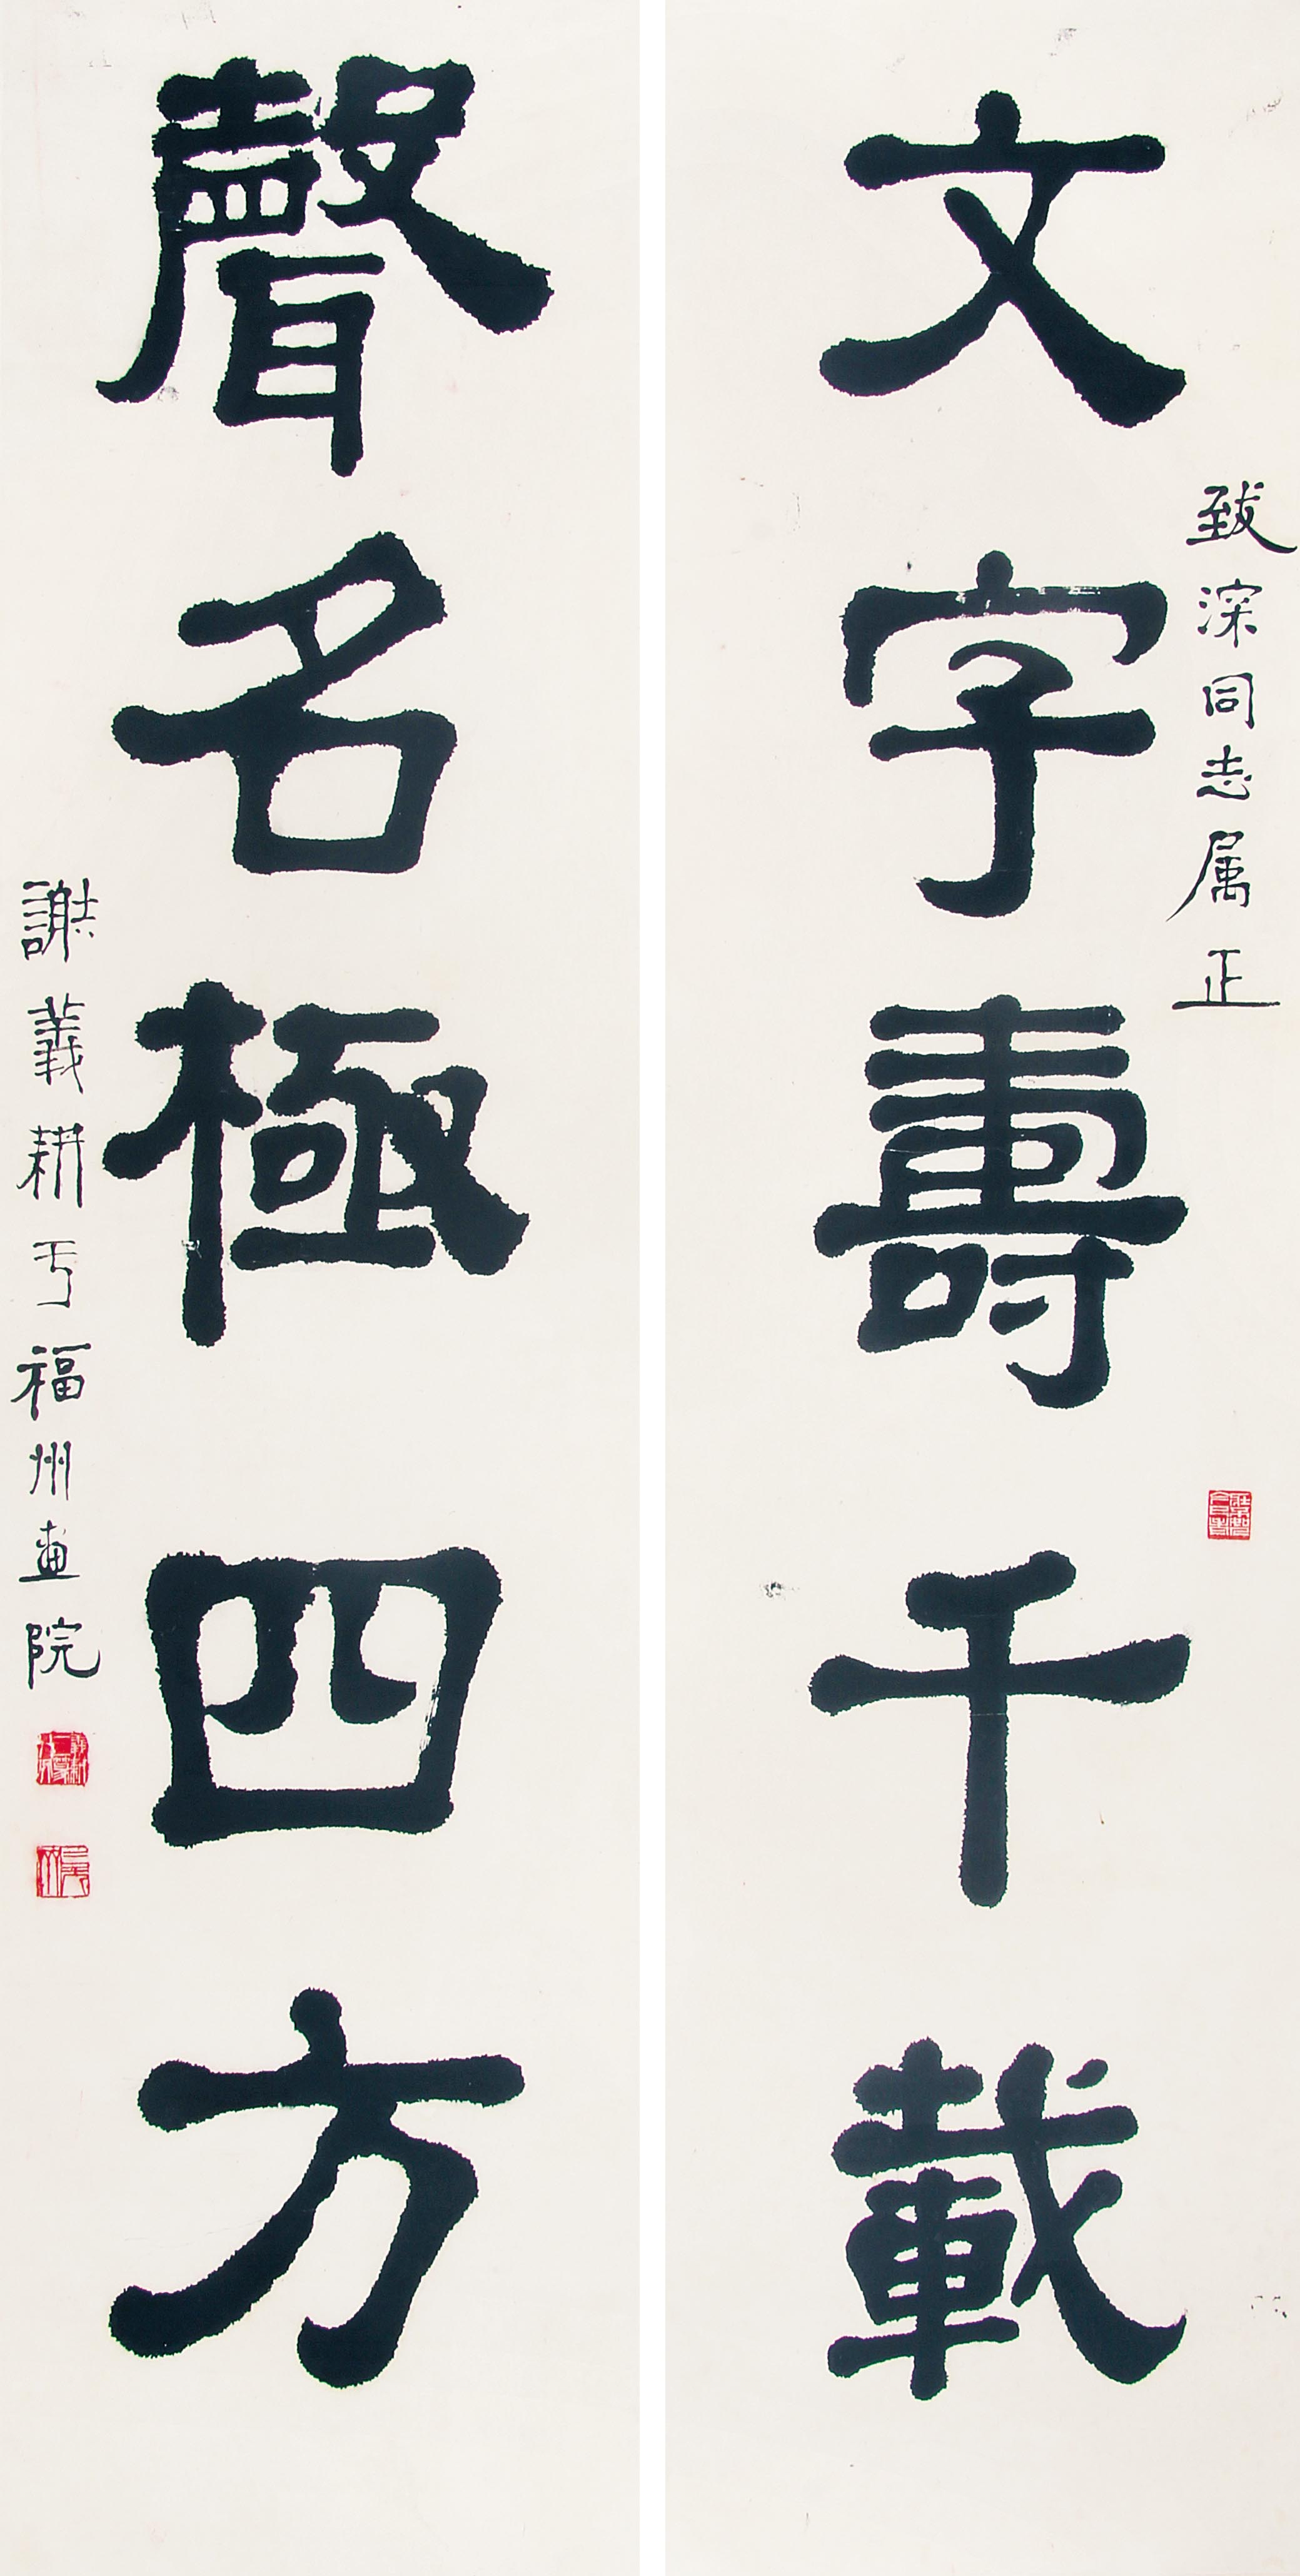 文字壽千載
致深同志属正
聲名極四方
謝義耕于福州畫院